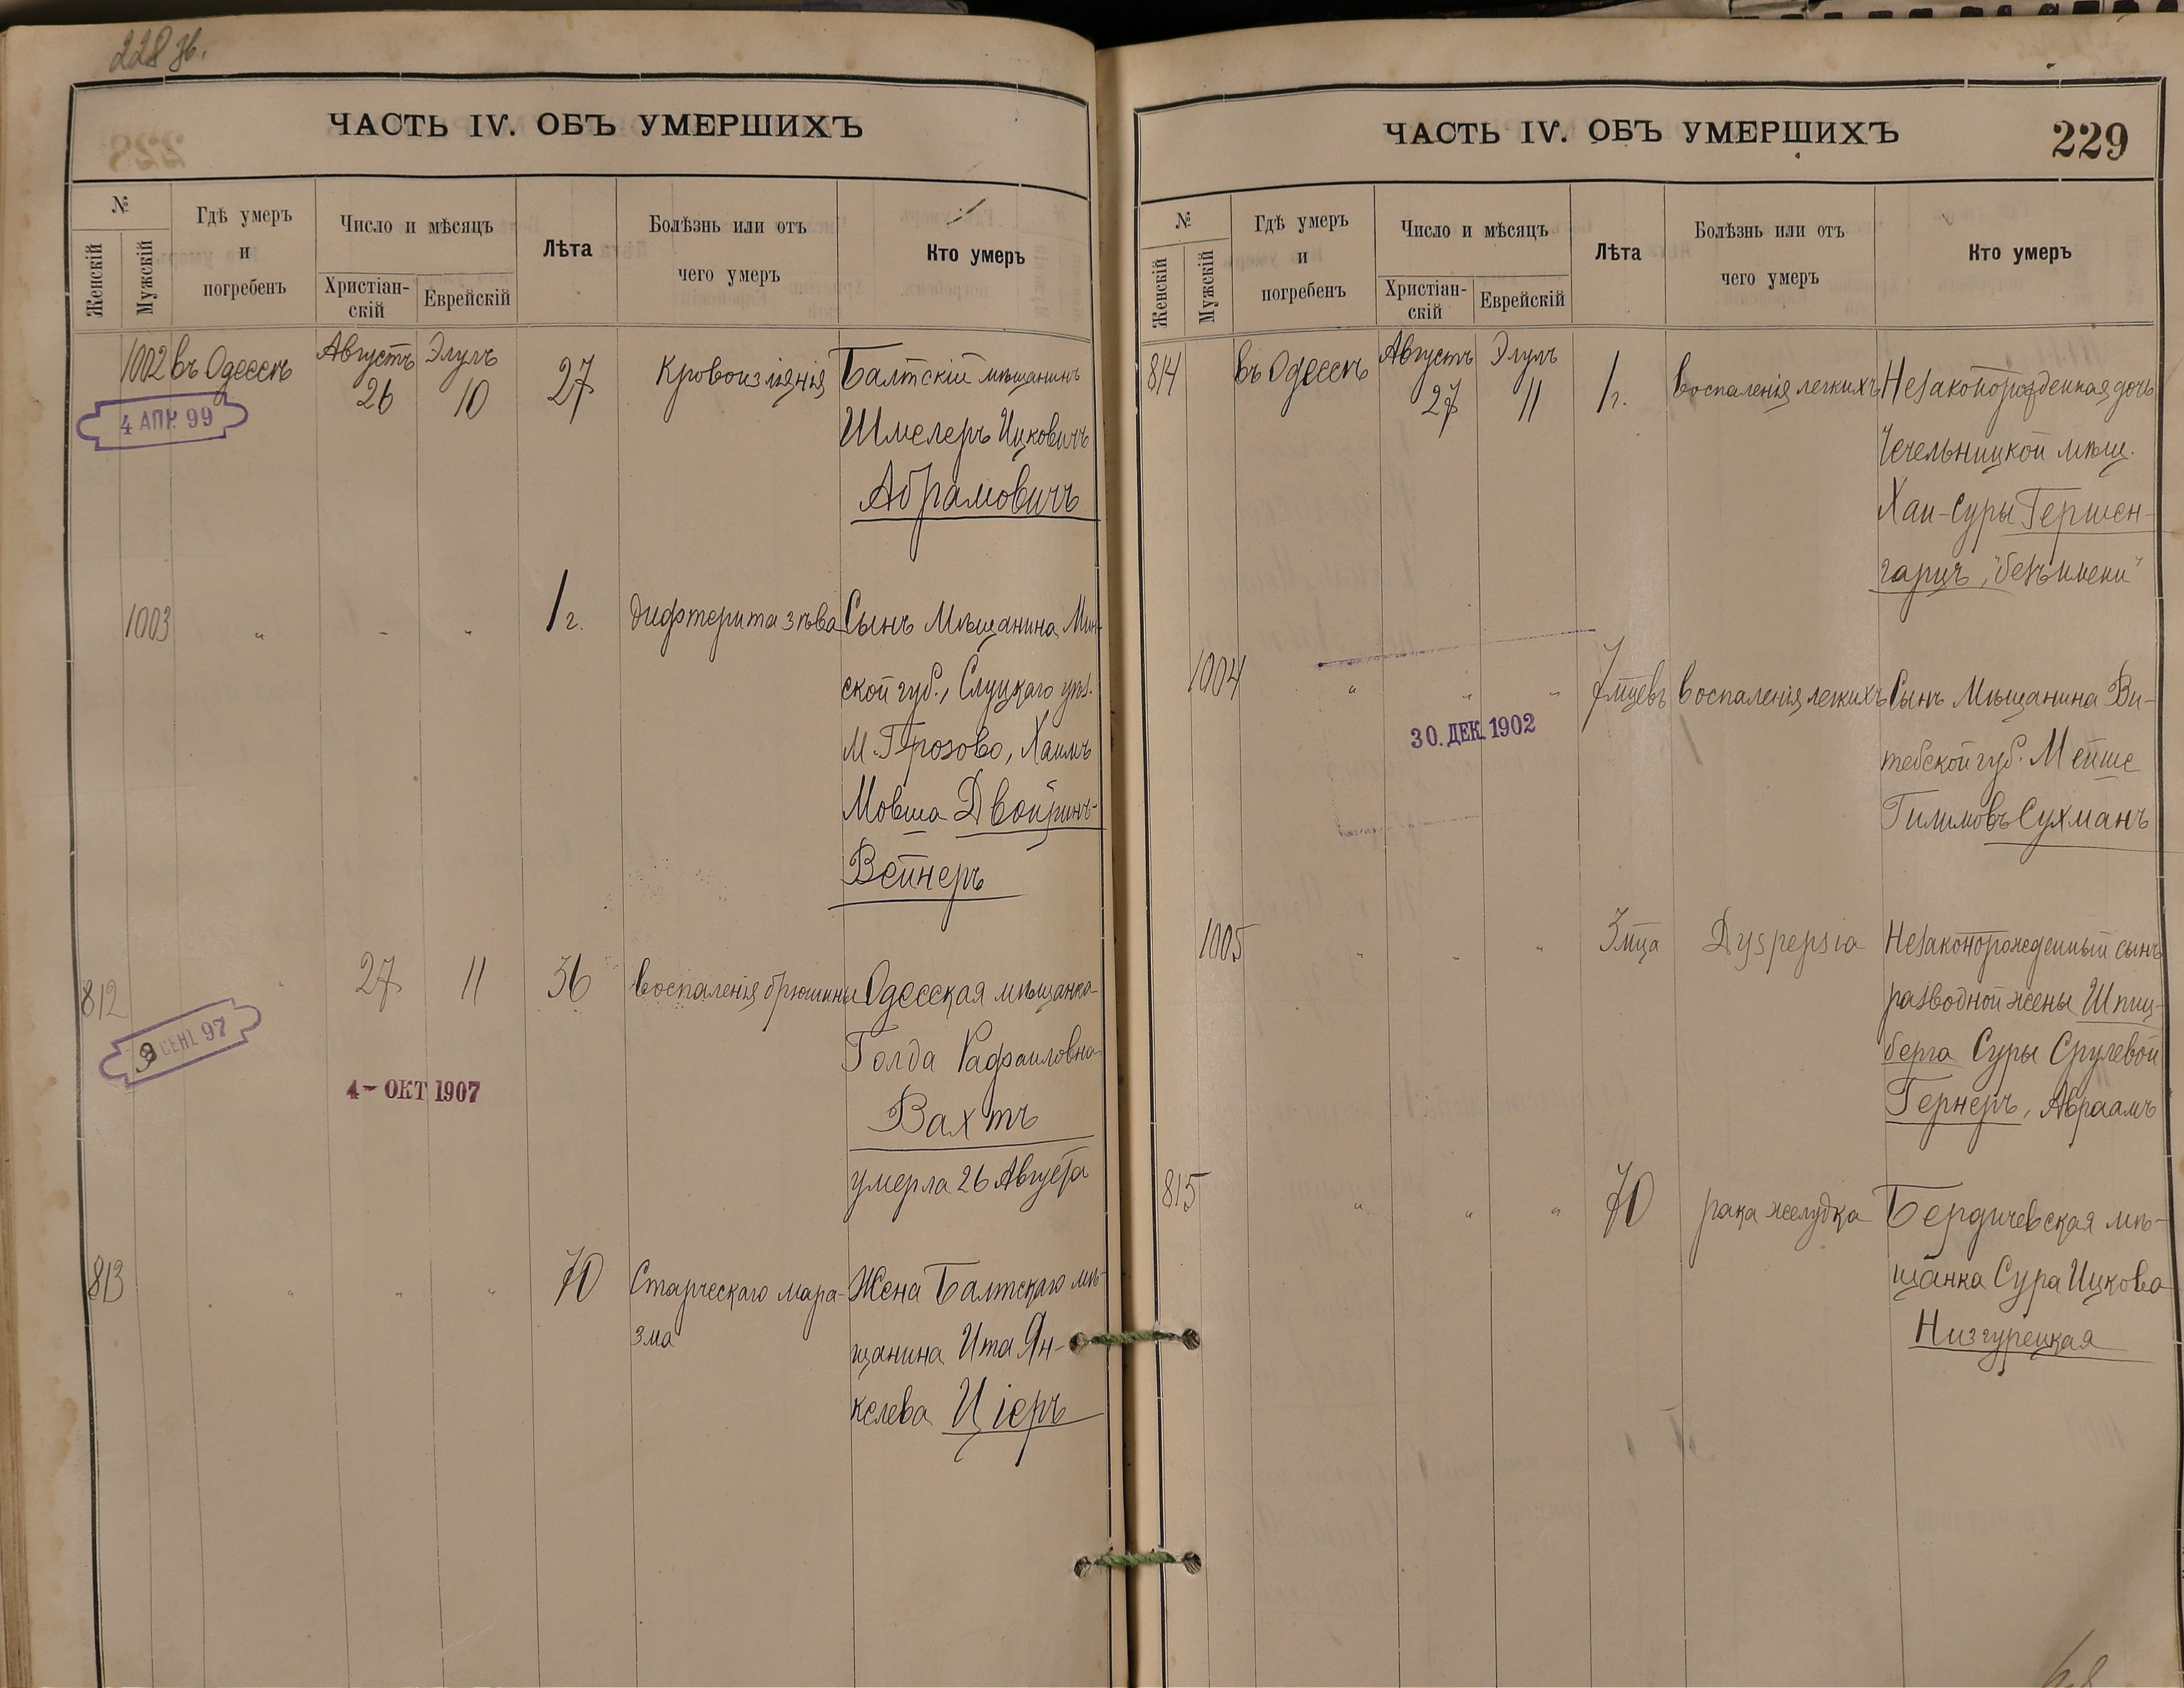 228 об.
ЧАСТЬ IV. ОБЪ УМЕРШИХЪ
№
Женскій
Мужскій
Гдѣ умеръ
и
погребенъ
Число и мѣсяцъ
Христіан-
скій
Еврейскій
Лѣта
Болѣзнь или отъ
чего умеръ
Кто умеръ
1002 въ Одессѣ Августъ 26 Элулъ 10 27 Кровоизліянія Балтскій мѣщанинъ
4 АПР. 99
Шмелеръ Ицковичъ
Абрамовичъ
1003 " " " 1 г. дифтерита зѣва Сынъ Мѣщанина Мин-
ской губ., Слуцкаго уѣз.
М. Грозово, Хаимъ
Мовша Двойринъ-
Вейнеръ
812 " 27 11 36 воспаленія брюшины Одесская мѣщанка
3 СЕНТ 97
4- ОКТ 1907
Голда Рафаиловна
Вахтъ
умерла 26 Августа
813 " " " 70 Старческаго мара-
зма
Жена Балтскаго мѣ-
щанина Ита Ян-
келева Ціеръ
ЧАСТЬ IV. ОБЪ УМЕРШИХЪ
229
№
Женскій
Мужскій
Гдѣ умеръ
и
погребенъ
Число и мѣсяцъ
Христіан-
скій
Еврейскій
Лѣта
Болѣзнь или отъ
чего умеръ
Кто умеръ
814 въ Одессѣ Августъ 27 Элулъ 11 1 г. воспаленія легкихъ Незаконорожденная дочь
Чечельницкой мѣщ.
Хаи-Суры Гершен-
гарцъ, "безъ имени"
1004 " " " 7 мцевъ воспаленія легкихъ Сынъ Мѣщанина Ви-
30. ДЕК. 1902
тебской губ. Мейше
Гилимовъ Сухманъ
1005 " " " 3 мца Dyspepsia Незаконорожденный сынъ
разводной жены Шпиц-
берга Суры Срулевой
Гернеръ, Авраамъ
815 " " " 70 рака желудка Бердичевская мѣ-
щанка Сура Ицкова
Низгурецкая